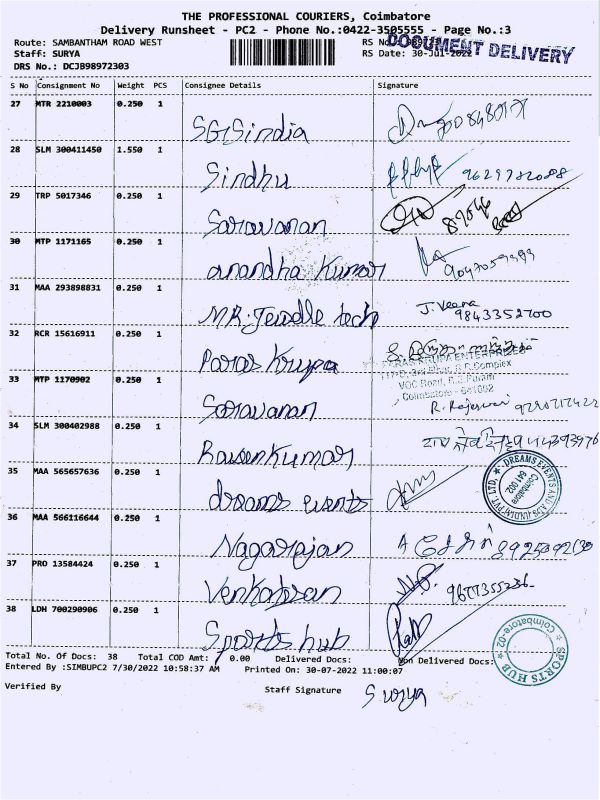 THE PROFESSIONAL COURIERS, Coimbatore
Delivery Runsheet - PC2 - Phone No.:0422-3505555 - Page No.:3
Route: SAMBANTHAM ROAD WEST RS No
DOCUMENT DELIVERY
Staff: SURYA RS Date: 30-Jul-2022
DRS No.: DCJB98972303
S No Consignment No Weight PCS Consignee Details Signature
27 MTR 2210003 0.250 1 SGSindia
28 SLM 300411450 1.550 1 Sindhu
29 TRP 5017346 0.250 1 Saravanan
30 MTP 1171165 0.250 1 anandha Kumar
31 MAA 293898831 0.250 1 MR. Jewdle tech J. Veena
9843352700
32 RCR 15616911 0.250 1 Paras Krupa
PARAS KRUPA ENTERPRIZES
VOC Road, P.S Puram
Coimbatore - 641002
33 MTP 1170902 0.250 1 Saravanan R. Rajeswari
34 SLM 300402988 0.250 1
35 MAA 565657636 0.250 1 dreams events
DREAMS EVENTS AND (INDIA) PVT. LTD. Coimbatore 641 002
36 MAA 566116644 0.250 1 Nagarajan
37 PRO 13584424 0.250 1
38 LDH 700290906 0.250 1 Sports hub
SPORTS HUB Coimbatore-02
Total No. Of Docs: 38 Total COD Amt: 0.00 Delivered Docs: Non Delivered Docs:
Entered By :SIMBUPC2 7/30/2022 10:58:37 AM Printed On: 30-07-2022 11:00:07
Verified By Staff Signature Surya